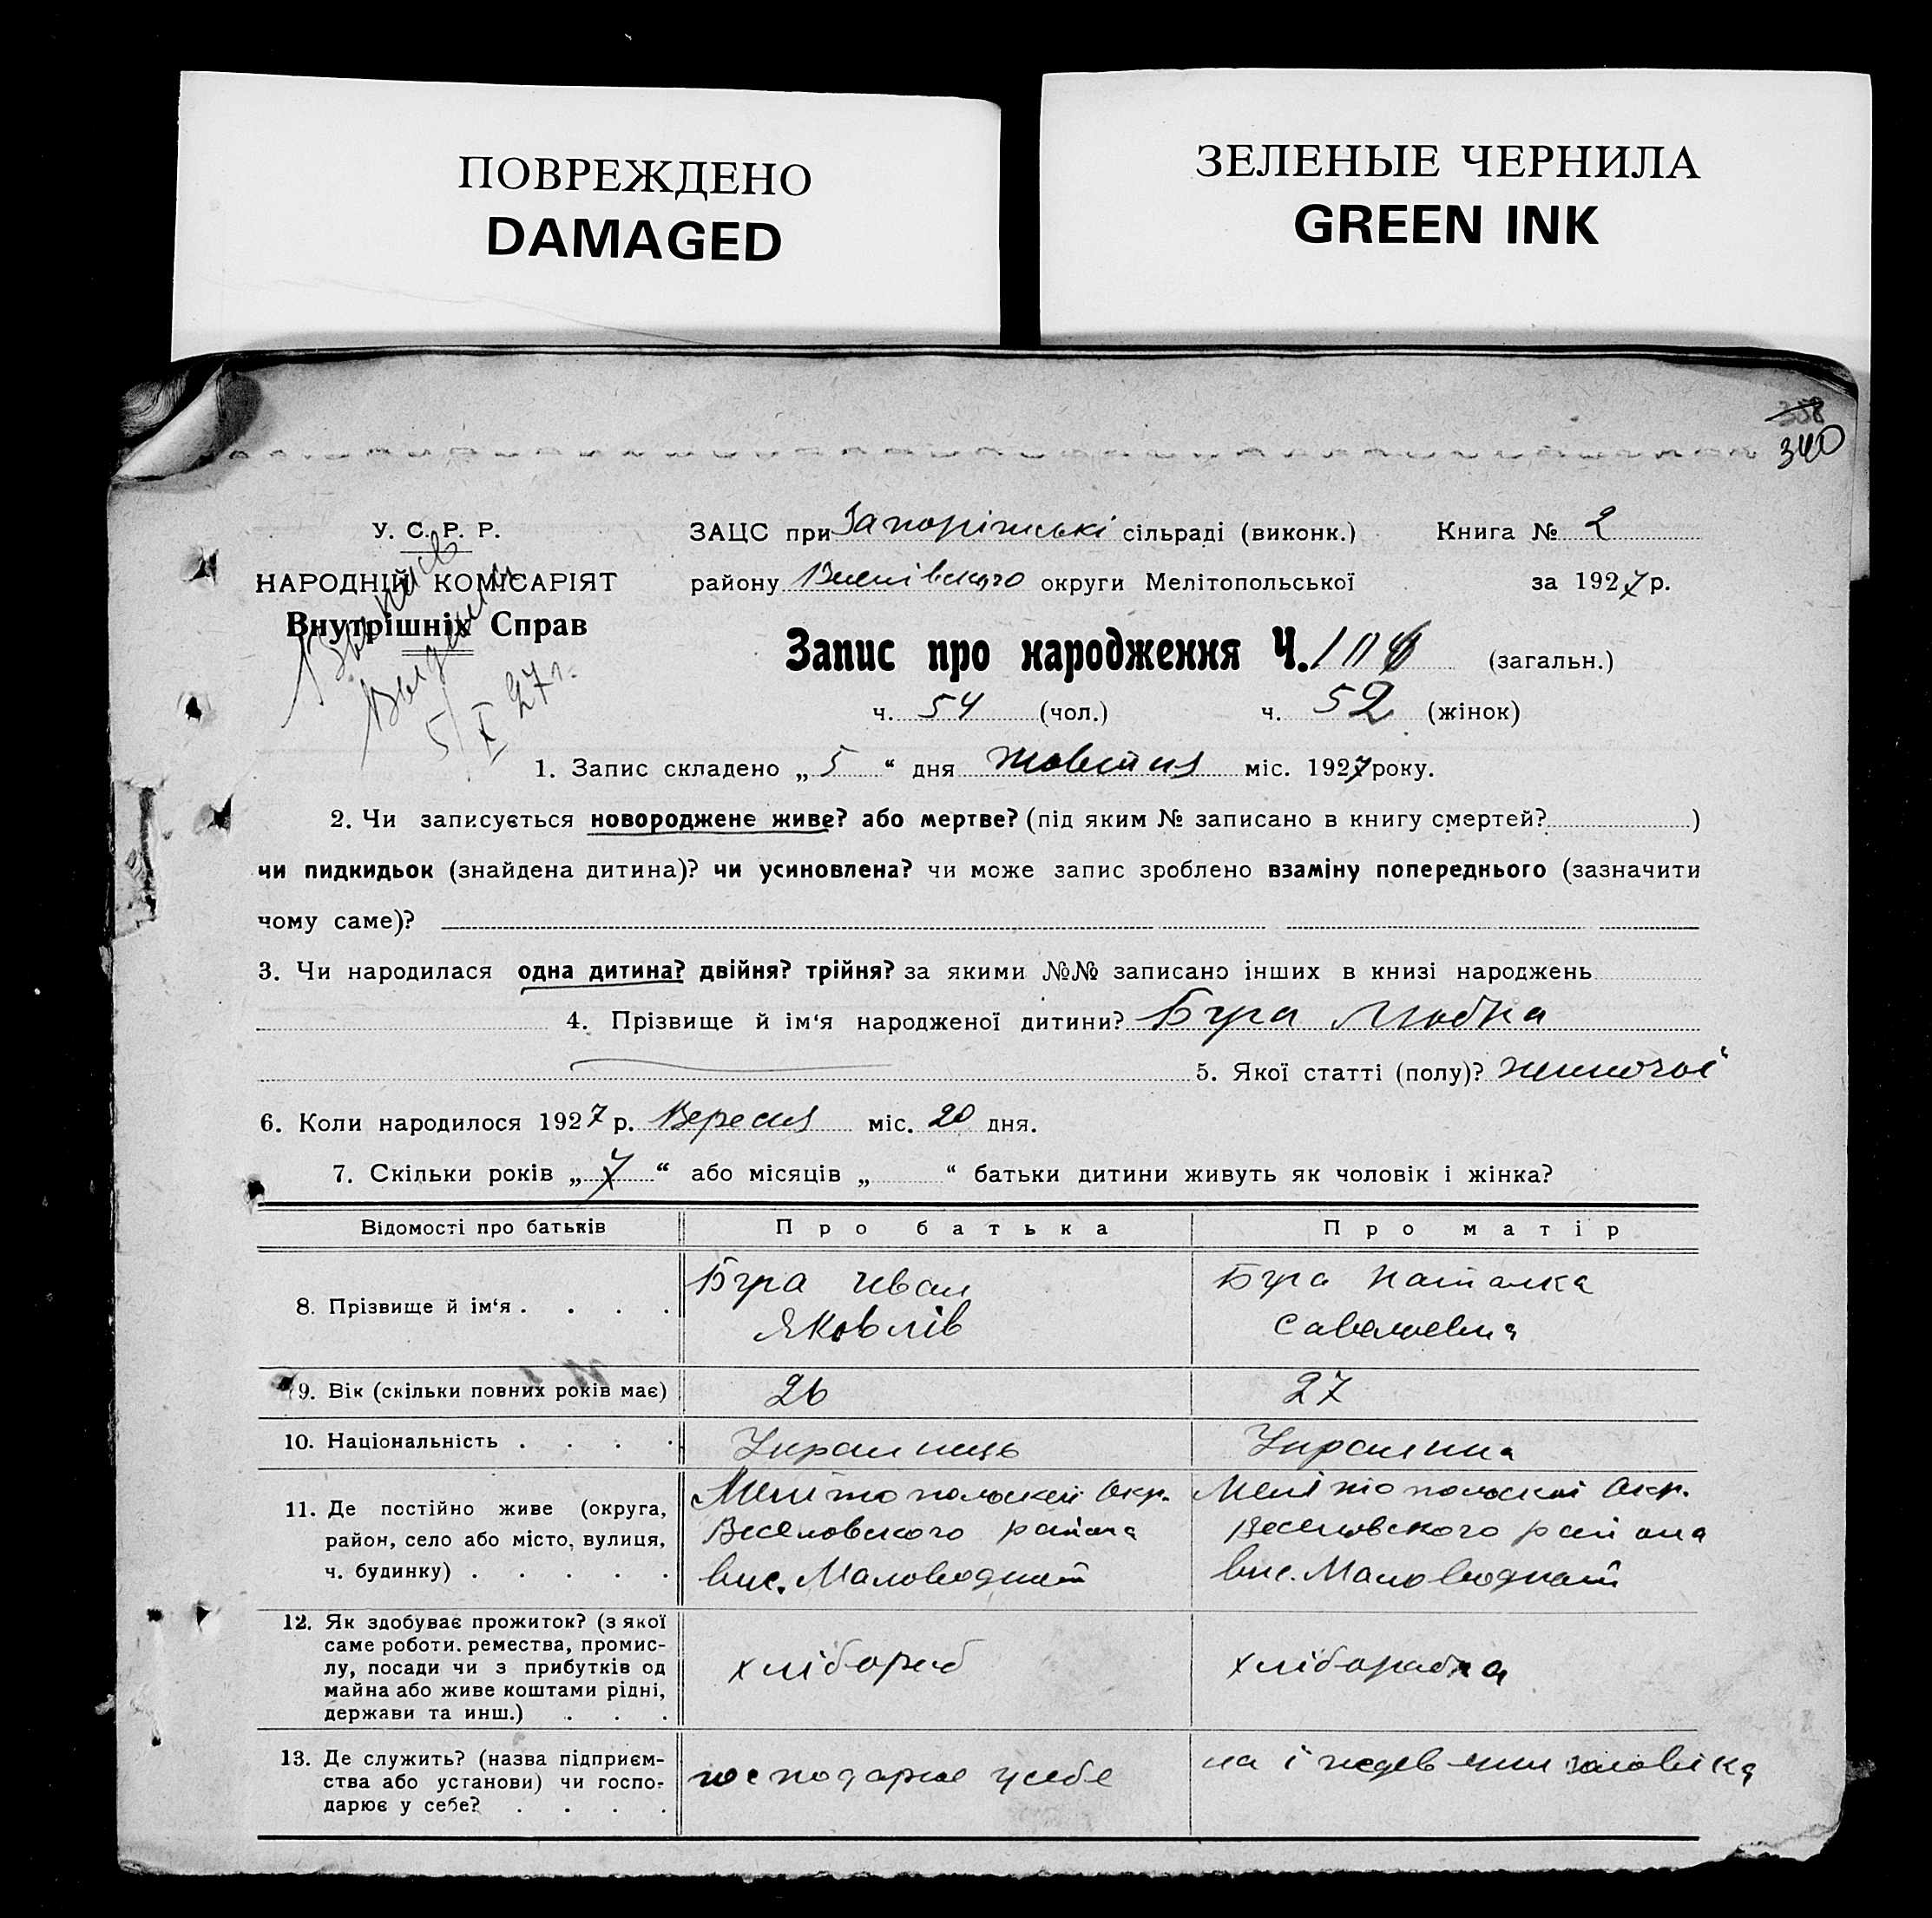 ПОВРЕЖДЕНО
DAMAGED
ЗЕЛЕНЫЕ ЧЕРНИЛА
GREEN INK
358
340
У. С. Р. Р.
НАРОДНІЙ КОМІСАРІЯТ
Внутрішніх Справ
5/X 27 г.
ЗАЦС при Запоріжські сільраді (виконк.) Книга № 2
району Веселівського округи Мелітопольської за 1927 р.
Запис про народження Ч. 106 (загальн.)
ч. 54 (чол.) ч. 52 (жінок)
1. Запис складено „ 5 “ дня Жовтня міс. 1927 року.
2. Чи записується новороджене живе? або мертве? (під яким № записано в книгу смертей? )
чи пидкидьок (знайдена дитина)? чи усиновлена? чи може запис зроблено взаміну попереднього (зазначити
чому саме)?
3. Чи народилася одна дитина? двійня? трійня? за якими №№ записано інших в книзі народжень
4. Прізвище й ім‘я народженої дитини? Бура Любка
5. Якої статті (полу)? жиночої
6. Коли народилося 1927 р. Вересня міс. 20 дня.
7. Скільки років „ 7 “ або місяців „ “ батьки дитини живуть як чоловік і жінка?
Відомості про батьків Про батька Про матір
8. Прізвище й ім‘я . . . . Бура Иван Яковлів Бура Наталка Савельевна
9. Вік (скільки повних років має) 26 27
10. Національність . . . . Украинець Украинка
11. Де постійно живе (округа, район, село або місто, вулиця, ч. будинку) . . . . . Мелітопольскей Окр. Веселовского района вис. Маловодний Мелітопольскій Окр. Веселовского района вис. Маловодний
12. Як здобуває прожиток? (з якої саме роботи. ремества, промислу, посади чи з прибутків од майна або живе коштами рідні, держави та инш.) . . . хлібороб хліборобка
13. Де служить? (назва підприємства або установи) чи господарює у себе? . . . . господарює у себе на іждевении чоловіка